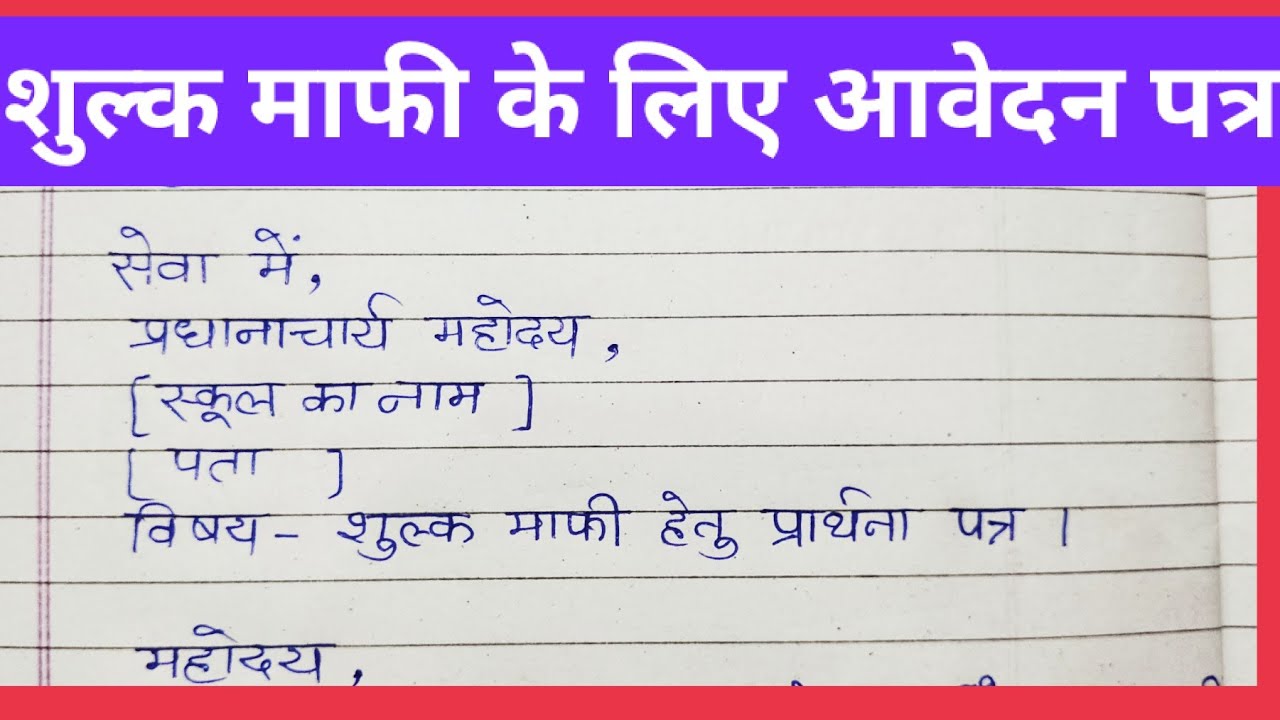 शुल्क माफी के लिए आवेदन पत्र
सेवा में,
प्रधानाचार्य महोदय,
[स्कूल का नाम]
[पता]
विषय - शुल्क माफी हेतु प्रार्थना पत्र ।
महोदय,